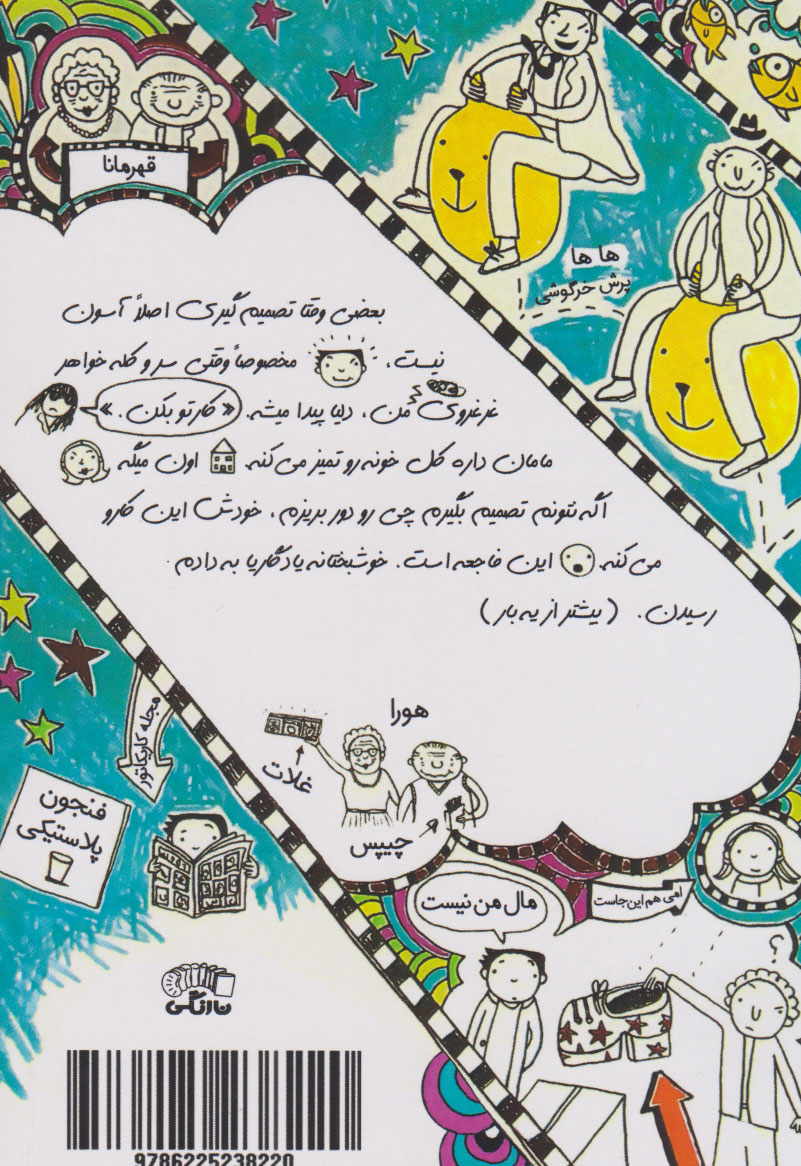 قهرمانا
ها ها
پرش خرگوشی
بعضی وقتا تصمیم گیری اصلاً آسون
نیست، مخصوصاً وقتی سر و کله خواهر
غرغروی من، دلیا پیدا میشه. «کارتو بکن.»
مامان داره کل خونه رو تمیز می کنه. اون میگه
اگه نتونم تصمیم بگیرم چی رو دور بریزم، خودش این کارو
می کنه. این فاجعه است. خوشبختانه یادگاریا به دادم
رسیدن. (بیشتر از یه بار)
هورا
غلات
چیپس
مجله کاریکاتور
فنجون
پلاستیکی
مال من نیست
امی هم این جاست
؟
نارنگی
9786225238220